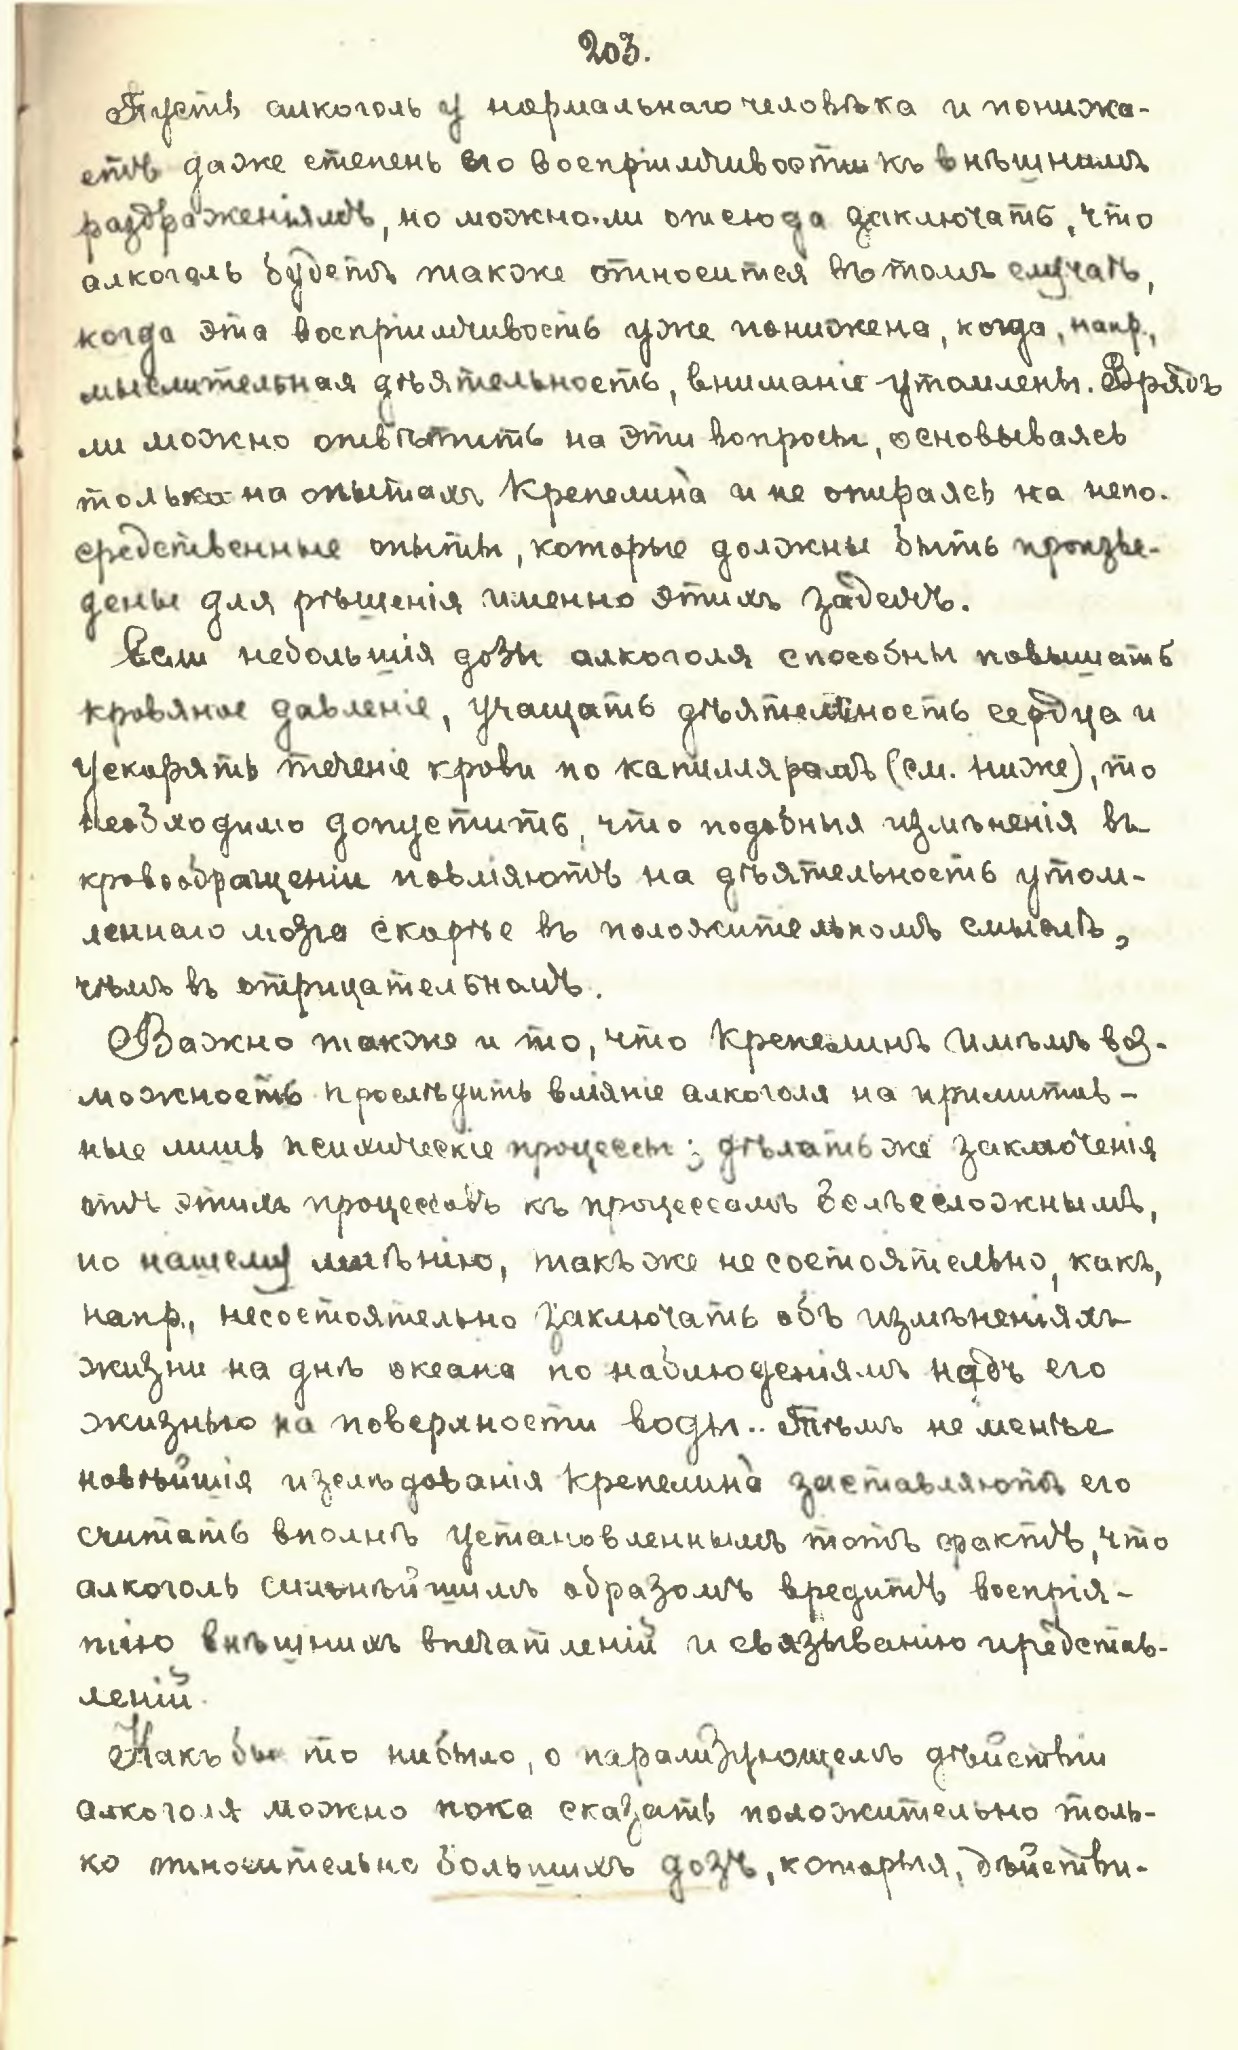 203.
Пусть алкоголь у нормальнаго человѣка и понижа-
етъ даже степень его воспріимчивости къ внѣшнимъ
раздраженіямъ, но можно-ли отсюда заключать, что
алкоголь будетъ также относится въ томъ случаѣ,
когда эта воспріимчивость уже понижена, когда, напр.,
мыслительная дѣятельность, вниманіе утомлены. Врядъ
ли можно отвѣтить на эти вопросы, основываясь
только на опытахъ Крепелина и не опираясь на непо-
средственные опыты, которые должны быть произве-
дены для рѣшенія именно этихъ задачъ.
Если небольшія дозы алкоголя способны повышать
кровяное давленіе, учащать дѣятельность сердца и
ускорять теченіе крови по капиллярамъ (см. ниже), то
необходимо допустить, что подобныя измѣненія въ
кровообращеніи повліяютъ на дѣятельность утом-
леннаго мозга скорѣе въ положительномъ смыслѣ,
чѣмъ въ отрицательномъ.
Важно также и то, что Крепелинъ имѣлъ воз-
можность прослѣдить вліяніе алкоголя на примитив-
ные лишь психическіе процессы; дѣлать же заключенія
отъ этихъ процессовъ къ процессамъ болѣе сложнымъ,
по нашему мнѣнію, такъ же не состоятельно, какъ,
напр., несостоятельно заключать объ измѣненіяхъ
жизни на днѣ океана по наблюденіямъ надъ его
жизнью на поверхности воды.. Тѣмъ не менѣе
новѣйшія изслѣдованія Крепелина заставляютъ его
считать вполнѣ установленнымъ тотъ фактъ, что
алкоголь сильнѣйшимъ образомъ вредитъ воспрія-
тію внѣшнихъ впечатленій и связыванію представ-
леній.
Какъ бы то ни было, о парализующемъ дѣйствіи
алкоголя можно пока сказать положительно толь-
ко относительно большихъ дозъ, которыя, дѣйстви-